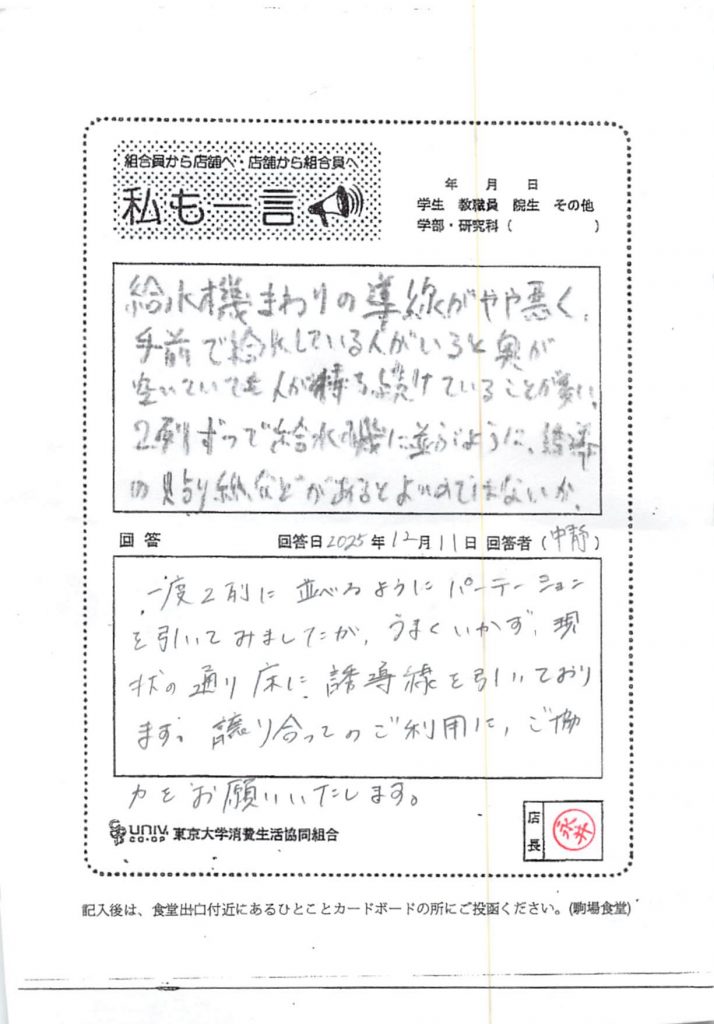 組合員から店舗へ・店舗から組合員へ
私も一言
年 月 日
学生 教職員 院生 その他
学部・研究科( )
給水機まわりの導線がやや悪く、
手前で給水している人がいると奥が
空いていても人が待ち続けていることが多い。
2列ずつで給水機に並ぶように、誘導
の貼り紙などがあるとよいのではないか。
回答 回答日2025年12月11日 回答者(中静)
一度2列に並べるようにパーテーション
を引いてみましたが、うまくいかず、現
状の通り床に誘導線を引いており
ます。譲り合ってのご利用に、ご協
力をお願いいたします。
UNIV. CO-OP 東京大学消費生活協同組合
店長
永井
記入後は、食堂出口付近にあるひとことカードボードの所にご投函ください。(駒場食堂)